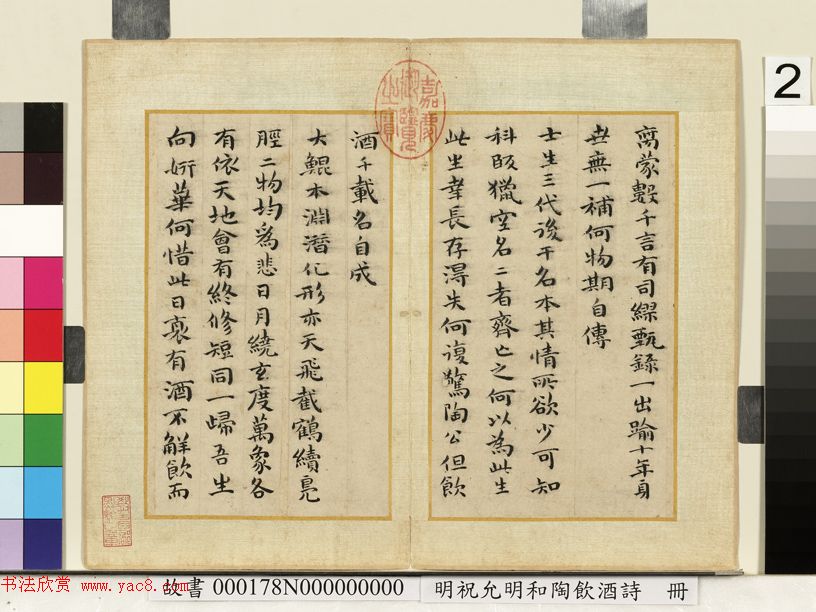 离蒙數千言有司繆甄錄一出踰十年身
世無一補何物期自傳
士生三代後干名本其情所欲少可知
科臤獵空名二者齊亡之何以為此生
此生幸長存得失何復驚陶公但飲
酒千載名自成
大鯤本淵潛化形亦天飛截鶴續鳧
脛二物均為悲日月繞玄度萬象各
有依天地會有終脩短同一歸吾生
向妍華何惜此日衰有酒不解飲而
嘉慶御覽之寶
2
书法欣赏 www.yac8.com
故書 000178N000000000 明祝允明和陶飲酒詩 冊